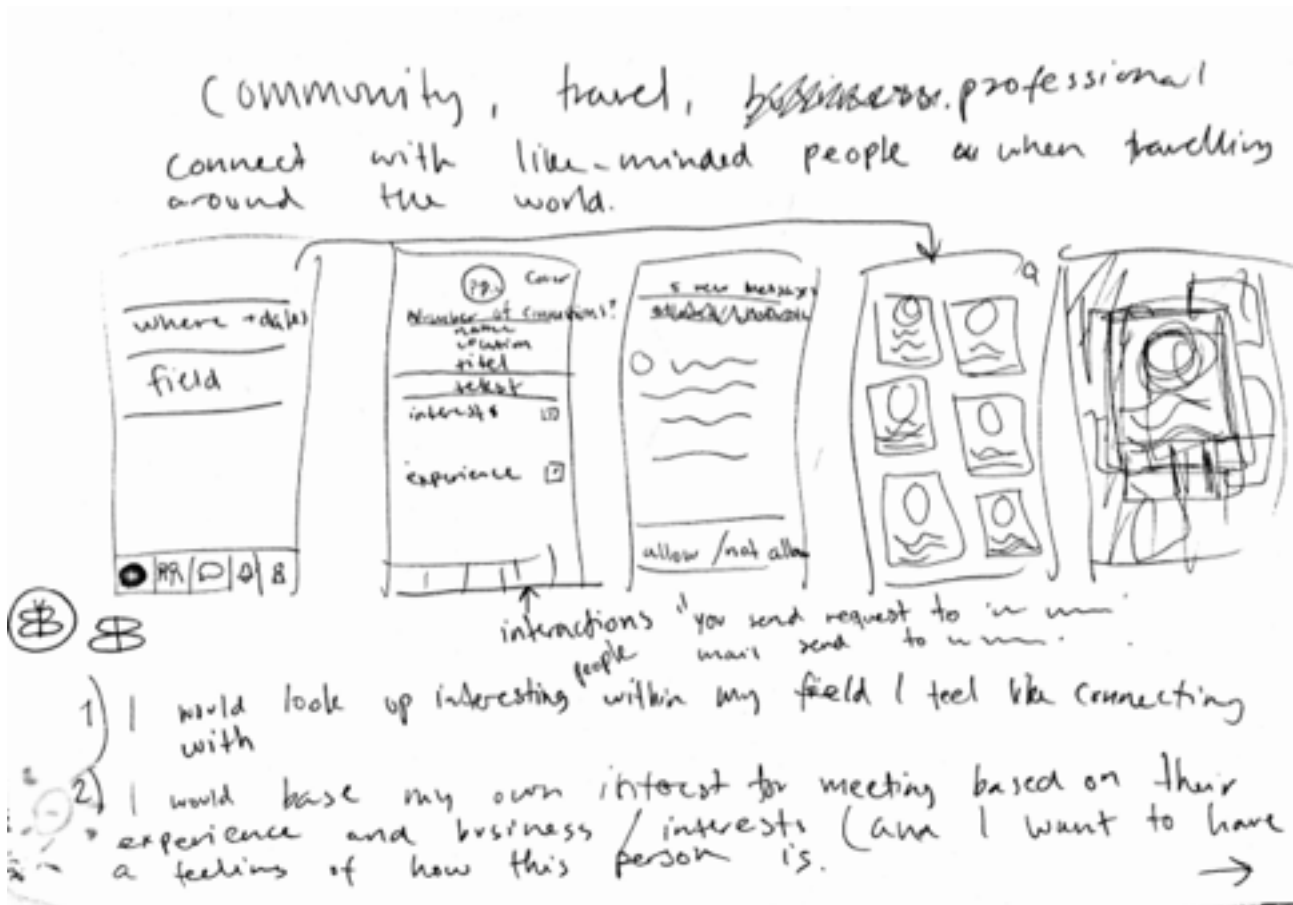 Community, travel, professional
Connect with like-minded people when travelling
around the world.
where + date)
field
Cover
Number of Connections?
name
location
titel
interests
experience
5 new messages
allow / not allow
interactions "you send request to
mail send to
people
1) I would look up interesting within my field I feel like connecting
with
2) I would base my own interest for meeting based on their
experience and business / interests (and I want to have
a feelings of how this person is.